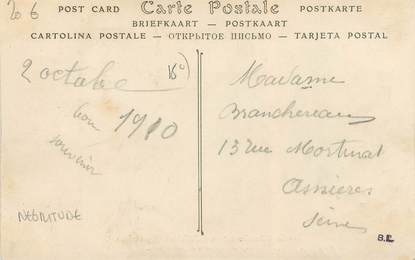 20 6
POST CARD Carte Postale POSTKARTE
BRIEFKAART - POSTKAART
CARTOLINA POSTALE - ОТКРЫТОЕ ПИСЬМО - TARJETA POSTAL
2 octobre
1910
bon
souvenir
NÉGRITUDE
Madame
Branchereau
13 rue Mortinat
Asnières
Seine
B.E.